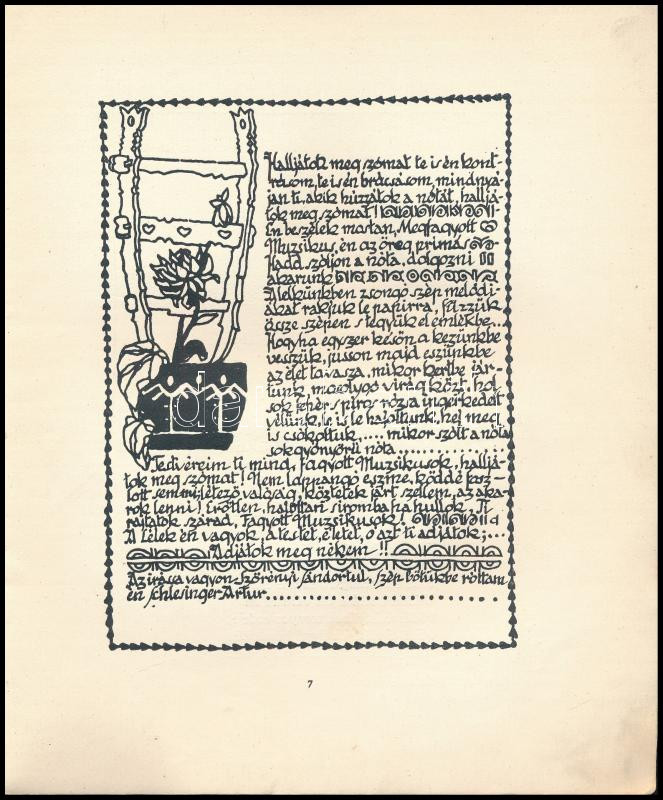 Halljátok meg szómat te is én kont-
rásom, te is én brácsásom, mindnyá-
jan ti, akik húzzátok a nótát, hallja-
tok meg szómat!
Én beszélek mostan, Megfagyott
Muzsikus, én az öreg prímás
Hadd szóljon a nóta, dolgozni
akarunk
Lelkünkben zsongó szép melódi-
ákat rakjuk le papirra, fűzzük
össze szépen s tegyük el emlékbe...
Hogyha egyszer késön a kezünkbe
vesszük, jusson majd eszünkbe
az élet tavasza, mikor kertbe jár-
tunk, mosolygó virág közt, hol
sok fehér s piros rózsa ingerkedett
vélünk, le is le hajoltunk, hej meg
is csókoltuk .... mikor szólt a nóta
sok gyönyörü nóta ..............
Testvéreim ti mind, fagyott Muzsikusok, hallja-
tok meg szómat! Nem lappangó eszme, köddé fosz-
lott semmi létező valóság, köztetek járt szellem, az aka-
rok lenni! Erőtlen, halottan siromba ha hullok, Ti
rajtatok szárad, Fagyott Muzsikusok!
A lélek én vagyok, a testet, életet, ó azt ti adjátok;...
Adjátok meg nékem!!
Az irása vagyon Szörényi Sándortul, szép bötükbe róttam
én Schlesinger Artur..............................
7